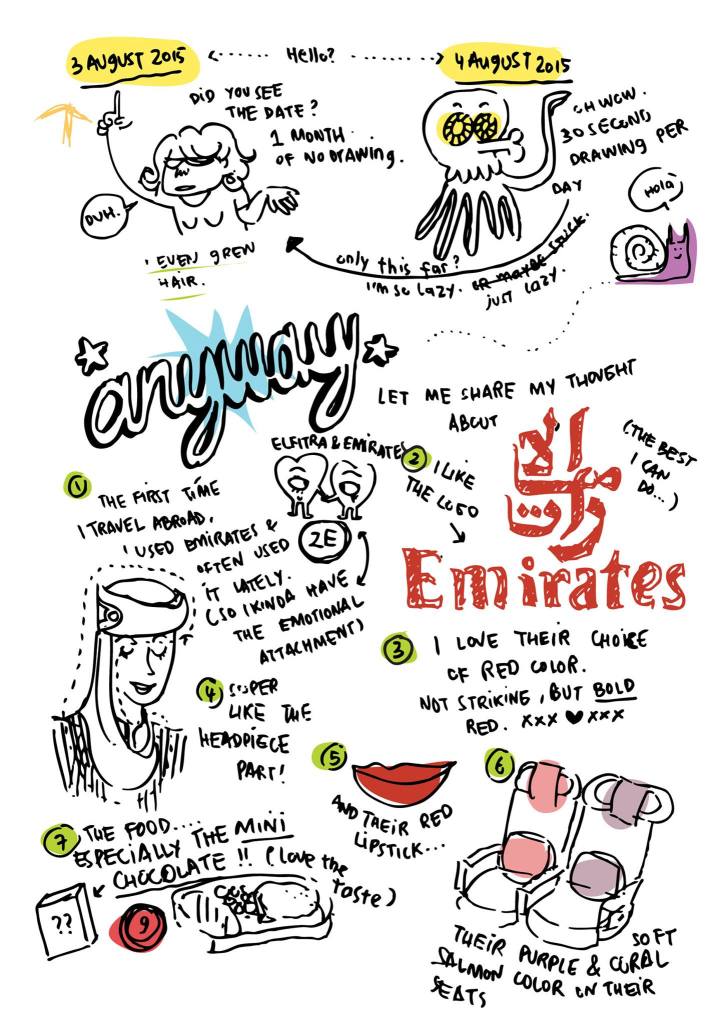 3 AUGUST 2015
Hello?
4 AUGUST 2015
DID YOU SEE
THE DATE?
1 MONTH
OF NO DRAWING.
DUH.
I EVEN GREW
HAIR.
OH WOW.
30 SECOND
DRAWING PER
DAY
Hola
only this far?
I'm so lazy. or maybe stuck.
just lazy.
anyway
LET ME SHARE MY THOUGHT
ABOUT
1
THE FIRST TIME
I TRAVEL ABROAD,
I USED EMIRATES &
OFTEN USED
IT LATELY.
(SO I KINDA HAVE
THE EMOTIONAL
ATTACHMENT)
ELFITRA & EMIRATES
2E
2
I LIKE
THE LOGO
(THE BEST
I CAN
DO...)
الإمارات
Emirates
3
I LOVE THEIR CHOICE
OF RED COLOR.
NOT STRIKING, BUT BOLD
RED. xxx ♥ xxx
4
SUPER
LIKE THE
HEADPIECE
PART!
5
AND THEIR RED
LIPSTICK...
6
THEIR PURPLE & CORAL SOFT
SALMON COLOR ON THEIR
SEATS
7
THE FOOD....
ESPECIALLY THE MINI
CHOCOLATE!! (love the
taste)
??
9